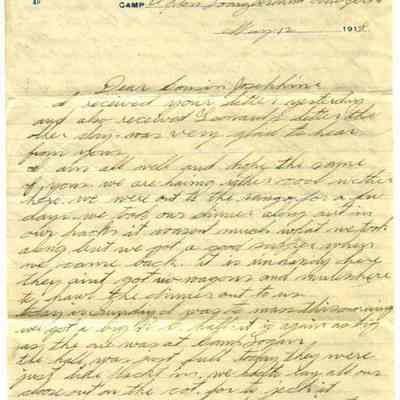 CAMP Upton Long Island
May 12 1918.
Dear Cousin Josephine
I received your letter yesterday
and also received Leonard's letter the
other day was very glad to hear
from you.
I am all well and hope the same
of you. we are having rather cool wether
here. we were out to the range for a few
days we took our dinner along out in
our packs it wasent much what we took
along but we got a good supper when
we came back. it is unhandy here
they aint got no wagons and mules here
to haul the dinner out to us.
today is Sunday I was to mass this morning
we got a big it is again as big
as the one was at Camp Logan
the hall was just full today they were
just like packt in. we had to lay all our
close out on the cot. for to